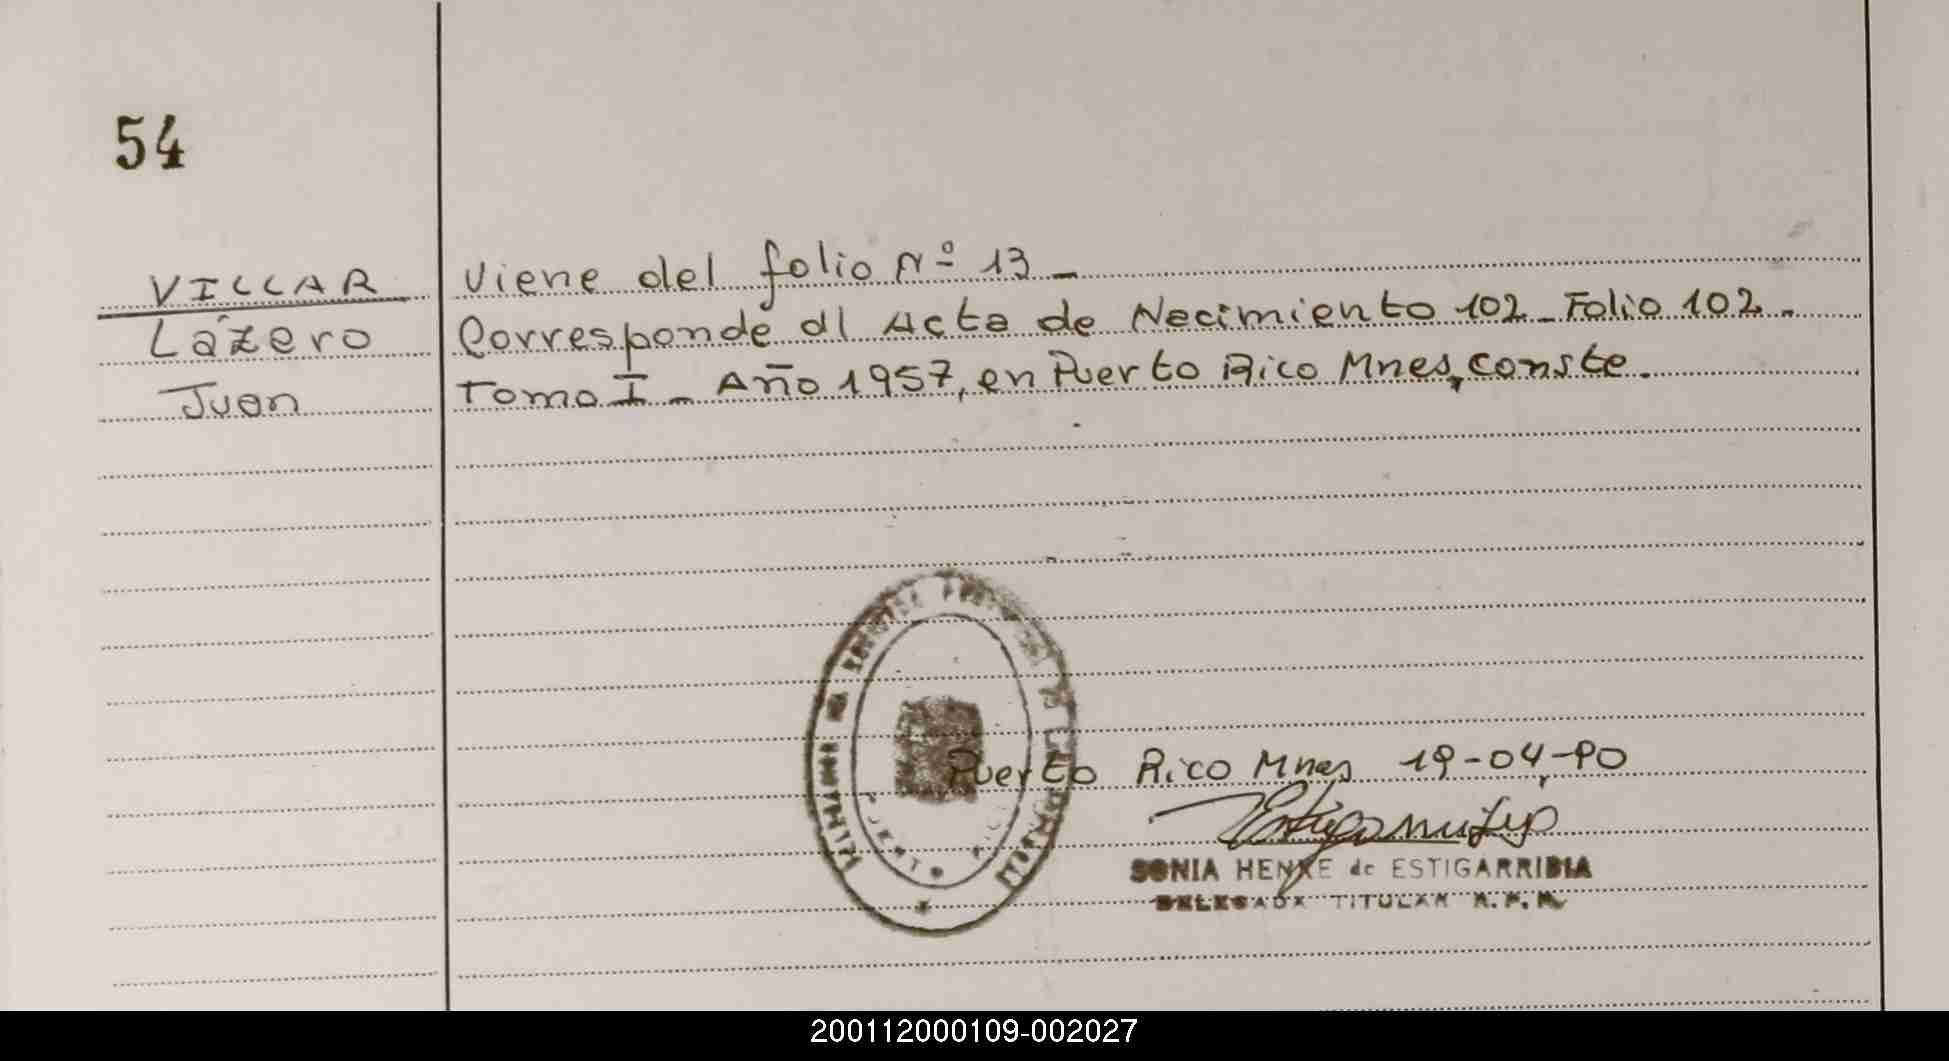 54
VILLAR
Lázaro
Juan
Viene del folio Nº 13 -
Corresponde al Acta de Nacimiento 102 - Folio 102 -
Tomo I - Año 1957, en Puerto Rico Mnes, conste.
PUERTO RICO
Puerto Rico Mnes 19-04-90
SONIA HENKE de ESTIGARRIBIA
DELEGADA TITULAR R.P.P.
200112000109-002027